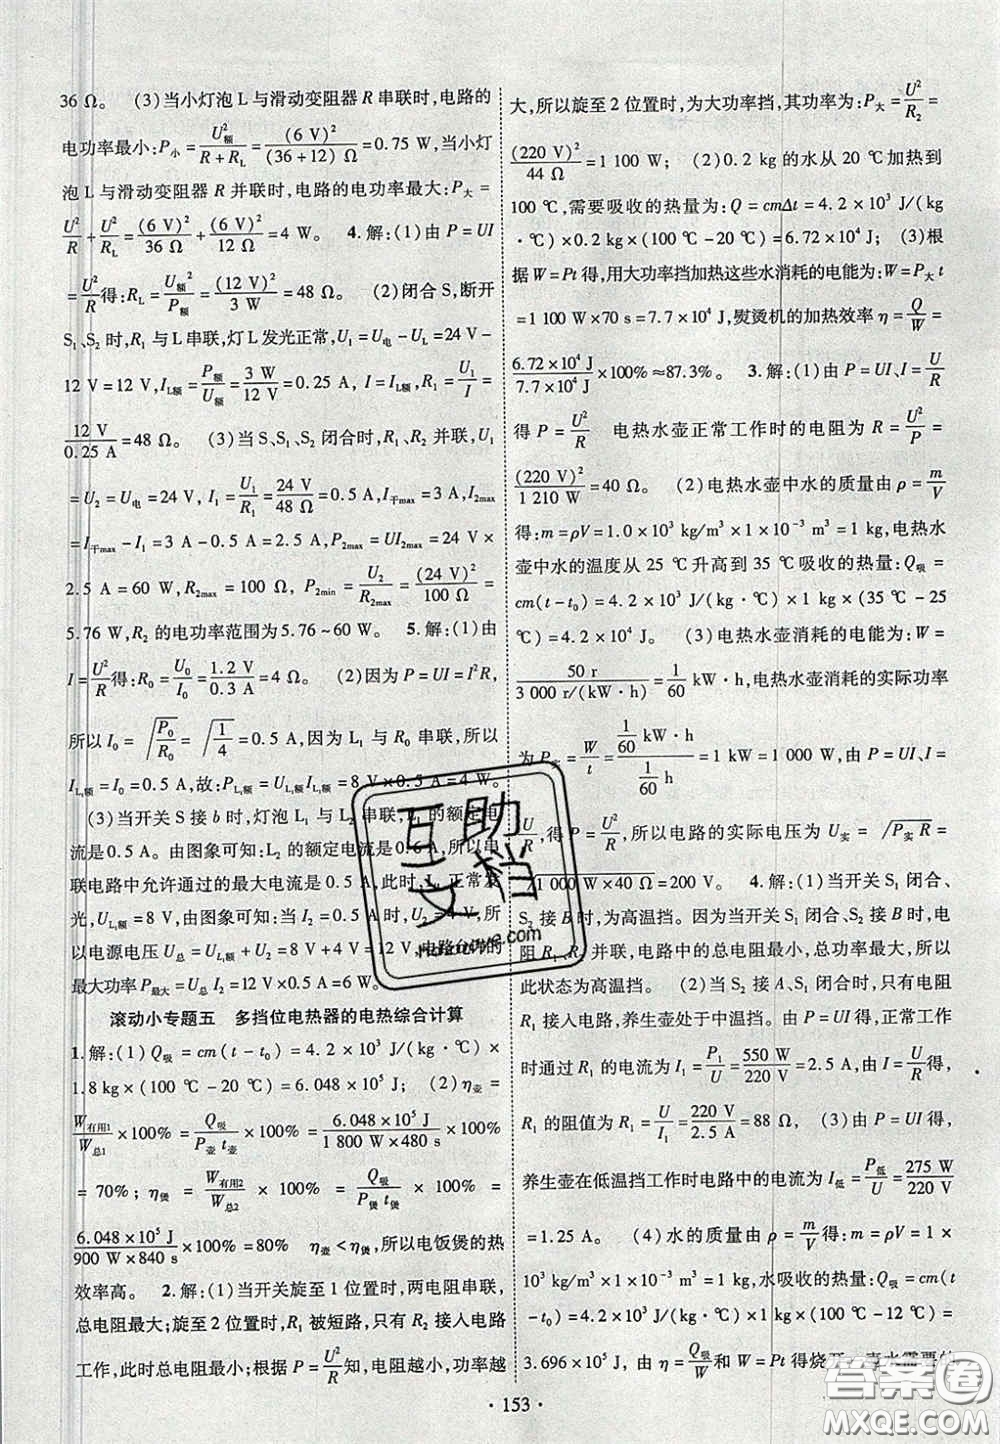 36 Ω。 (3)当小灯泡 L 与滑动变阻器 R 串联时,电路的
电功率最小:P小 = U额²/(R+RL) = (6 V)²/((36+12) Ω) = 0.75 W,当小灯
泡 L 与滑动变阻器 R 并联时,电路的电功率最大:P大 =
U²/R + U²/RL = (6 V)²/36 Ω + (6 V)²/12 Ω = 4 W。 4.解:(1)由 P = UI
= U²/R 得:RL = U额²/P额 = (12 V)²/3 W = 48 Ω。 (2)闭合 S,断开
S1、S2 时,R1 与 L 串联,灯 L 发光正常,U1 = U电 - UL = 24 V -
12 V = 12 V,IL额 = P额/U额 = 3 W/12 V = 0.25 A, I = IL额,R1 = U1/I =
12 V/0.25 A = 48 Ω。 (3)当 S、S1、S2 闭合时,R1、R2 并联,U1
= U2 = U电 = 24 V, I1 = U1/R1 = 24 V/48 Ω = 0.5 A,I干max = 3 A,I2max
= I干max - I1 = 3 A - 0.5 A = 2.5 A,P2max = UI2max = 24 V ×
2.5 A = 60 W, R2max = 100 Ω, P2min = U2/R2max = (24 V)²/100 Ω =
5.76 W, R2 的电功率范围为 5.76~60 W。 5.解:(1)由
I = U²/R 得:R0 = U0/I0 = 1.2 V/0.3 A = 4 Ω。 (2)因为 P = UI = I²R,
所以 I0 = √(P0/R0) = √(1/4) = 0.5 A,因为 L1 与 R0 串联,所以
IL1额 = I0 = 0.5 A,故:PL1额 = UL1额IL1额 = 8 V × 0.5 A = 4 W。
(3)当开关 S 接 b 时,灯泡 L1 与 L2 串联,L1 的额定电
流是 0.5 A。由图象可知:L2 的额定电流是 0.6 A,所以串
联电路中允许通过的最大电流是 0.5 A,此时,L1 正常发
光,UL1额 = 8 V,由图象可知,当 I = 0.5 A 时,U2 = 4 V,所
以电源电压 U总 = UL1额 + U2 = 8 V + 4 V = 12 V,电路允许的
最大功率 P最大 = U总 I = 12 V × 0.5 A = 6 W。
滚动小专题五 多挡位电热器的电热综合计算
1.解:(1) Q吸 = cm(t - t0) = 4.2 × 10³ J/(kg · ℃) ×
1.8 kg × (100 ℃ - 20 ℃) = 6.048 × 10⁵ J; (2) η壶 =
W有用1/W总1 × 100% = Q吸/(P壶 t壶) × 100% = 6.048 × 10⁵ J/(1 800 W × 480 s) × 100%
= 70%; η煲 = W有用2/W总2 × 100% = Q吸/(P煲 t煲) × 100% =
6.048 × 10⁵ J/(900 W × 840 s) × 100% = 80% η壶 < η煲,所以电饭煲的热
效率高。 2.解:(1)当开关旋至 1 位置时,两电阻串联,
总电阻最大;旋至 2 位置时,R1 被短路,只有 R2 接入电路
工作,此时总电阻最小;根据 P = U²/R 知,电阻越小,功率越
大,所以旋至 2 位置时,为大功率挡,其功率为:P大 = U²/R2 =
(220 V)²/44 Ω = 1 100 W; (2) 0.2 kg 的水从 20 ℃ 加热到
100 ℃,需要吸收的热量为:Q = cmΔt = 4.2 × 10³ J/(kg
· ℃) × 0.2 kg × (100 ℃ - 20 ℃) = 6.72 × 10⁴ J; (3)根
据 W = Pt 得,用大功率挡加热这些水消耗的电能为:W = P大 t
= 1 100 W × 70 s = 7.7 × 10⁴ J,熨烫机的加热效率 η = Q/W =
6.72 × 10⁴ J/7.7 × 10⁴ J × 100% ≈ 87.3%。 3.解:(1)由 P = UI、I = U/R
得 P = U²/R 电热水壶正常工作时的电阻为 R = U²/P =
(220 V)²/1 210 W = 40 Ω。 (2)电热水壶中水的质量由 ρ = m/V
得:m = ρV = 1.0 × 10³ kg/m³ × 1 × 10⁻³ m³ = 1 kg,电热水
壶中水的温度从 25 ℃ 升高到 35 ℃ 吸收的热量:Q吸 =
cm(t - t0) = 4.2 × 10³ J/(kg · ℃) × 1 kg × (35 ℃ - 25
℃) = 4.2 × 10⁴ J。 (3)电热水壶消耗的电能为:W =
50 r/(3 000 r/(kW · h)) = 1/60 kW · h,电热水壶消耗的实际功率
为 P实 = W/t = (1/60 kW · h)/(1/60 h) = 1 kW = 1 000 W,由 P = UI、I =
U/R,得:P = U²/R,所以电路的实际电压为 U实 = √(P实 R) =
√(1 000 W × 40 Ω) = 200 V。 4.解:(1)当开关 S1 闭合、
S2 接 B 时,为高温挡。因为当开关 S1 闭合、S2 接 B 时,电
阻 R1、R2 并联,电路中的总电阻最小,总功率最大,所以
此状态为高温挡。 (2)当 S2 接 A、S1 闭合时,只有电阻
R1 接入电路,养生壶处于中温挡。由 P = UI 得,正常工作
时通过 R1 的电流为 I1 = P1/U = 550 W/220 V = 2.5 A。由 I = U/R 得,
R1 的阻值为 R1 = U/I1 = 220 V/2.5 A = 88 Ω。 (3)由 P = UI 得,
养生壶在低温挡工作时电路中的电流为 I低 = P低/U = 275 W/220 V
= 1.25 A。 (4)水的质量由 ρ = m/V 得:m = ρV = 1 ×
10³ kg/m³ × 1 × 10⁻³ m³ = 1 kg,水吸收的热量:Q吸 = cm(t
- t0) = 4.2 × 10³ J/(kg · ℃) × 1 kg × (100 ℃ - 12 ℃) =
3.696 × 10⁵ J,由 η = Q吸/W 和 W = Pt 得烧开一壶水需要的
· 153 ·
互助文档
答案圈
MXQE.COM